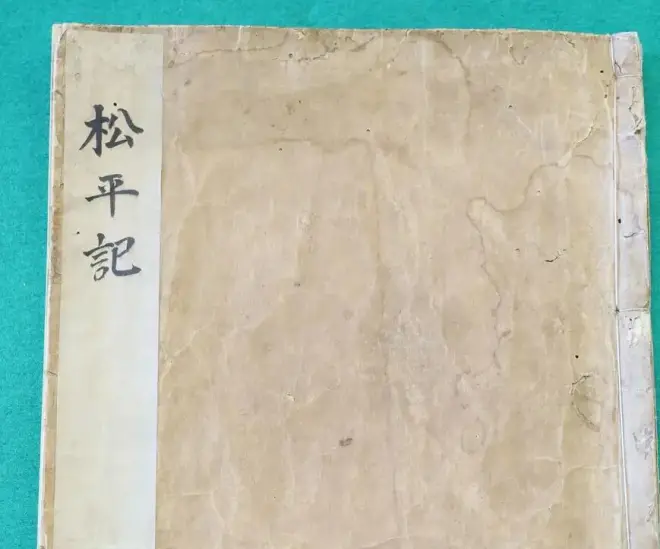 松平記